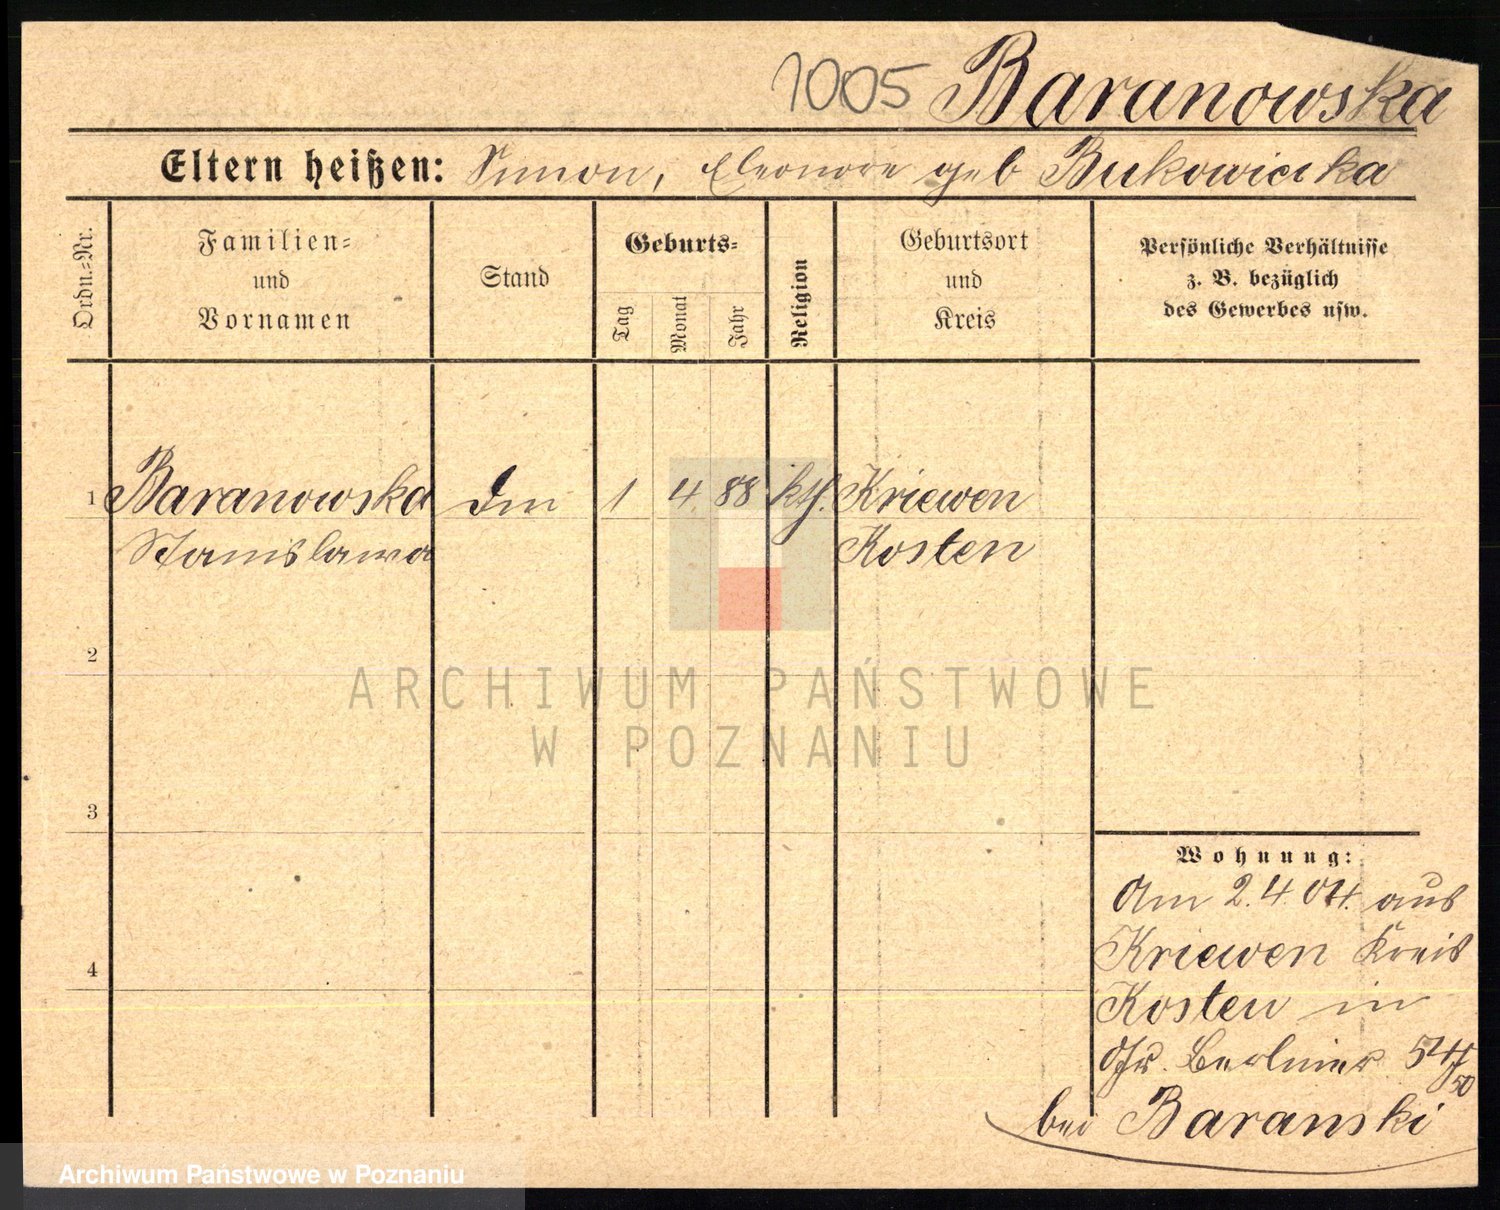 1005 Baranowska
Eltern heißen: Simon, Eleonore geb Bukowiecka
Ordn.-Nr.
Familien-
und
Vornamen
Stand
Geburts-
Tag
Monat
Jahr
Religion
Geburtsort
und
Kreis
Persönliche Verhältnisse
z. B. bezüglich
des Gewerbes usw.
1 Baranowska 1 4. 88 kth. Kriewen
Stanislawa Kosten
2
ARCHIWUM PAŃSTWOWE
W POZNANIU
3
Wohnung:
Am 2.4.04. aus
Kriewen Kreis
4
Kosten in
Gr. Berliner 54/50
bei Baranski
Archiwum Państwowe w Poznaniu